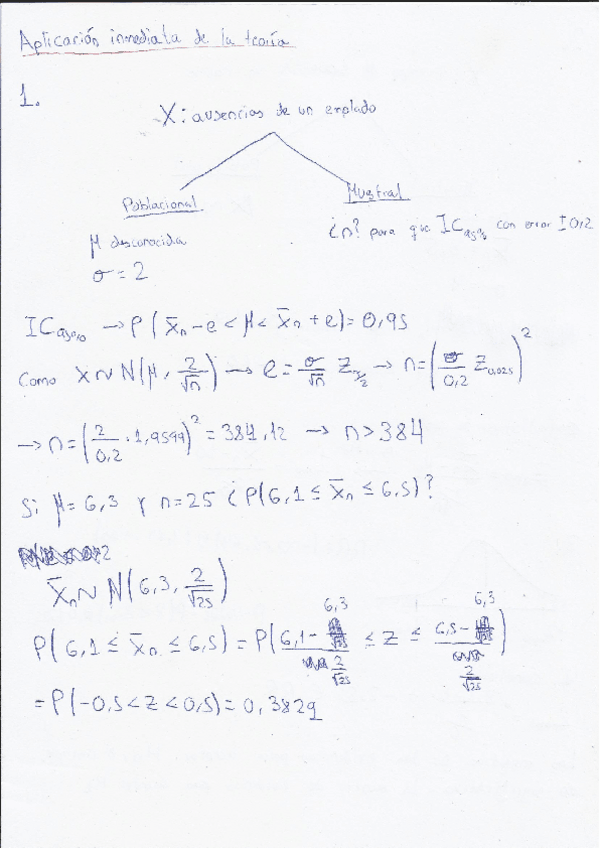 Aplicación inmediata de la teoría
1.
X: ausencias de un emplado
Poblacional
Muestral
μ desconocida
¿n? para que IC95% con error ±0,2
σ = 2
IC95% → P(x̄n - e < μ < x̄n + e) = 0,95
Como X ~ N(μ, 2/√n) → e = σ/√n Zα/2 → n = (σ/0,2 Z0,025)²
→ n = (2/0,2 · 1,9599)² = 384,12 → n > 384
Si μ = 6,3 y n = 25 ¿P(6,1 ≤ x̄n ≤ 6,5)?
x̄n ~ N(6,3, 2/√25)
P(6,1 ≤ x̄n ≤ 6,5) = P((6,1 - 6,3)/(2/√25) ≤ Z ≤ (6,5 - 6,3)/(2/√25))
= P(-0,5 < z < 0,5) = 0,3829